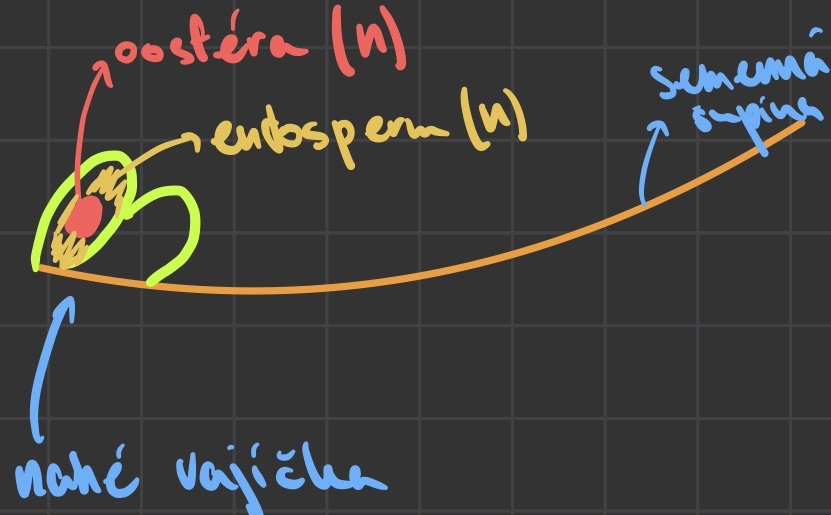 oosféra (n)
endosperm (n)
semenná
šupina
nahé vajíčka